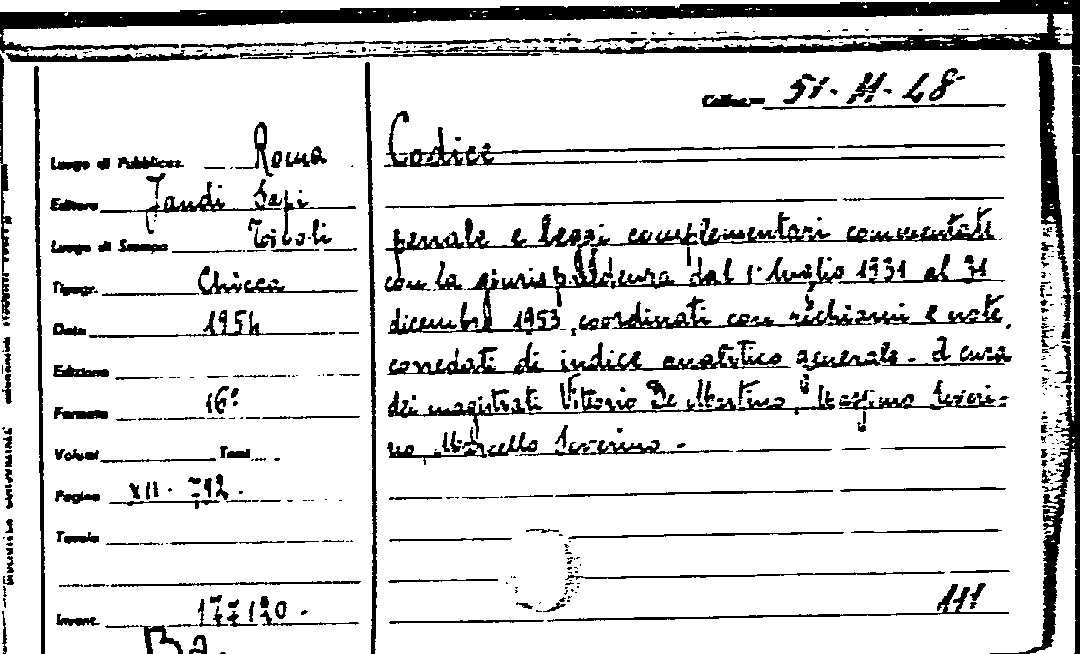 Colloc. 51-M-48
Luogo di Pubblicaz. Roma
Editore Jandi Sapi
Luogo di Stampa Tivoli
Tipogr. Chicca
Data 1954
Edizione
Formato 16º
Volumi Tomi
Pagine XII - 792.
Tavole
Invent. 177120.
Codice
penale e leggi complementari commentati
con la giurisprudenza dal 1º luglio 1931 al 31
dicembre 1953, coordinati con richiami e note,
corredati di indice analitico generale. A cura
dei magistrati Vittorio De Martino, Massimo Severi=
no, Marcello Severino.
111